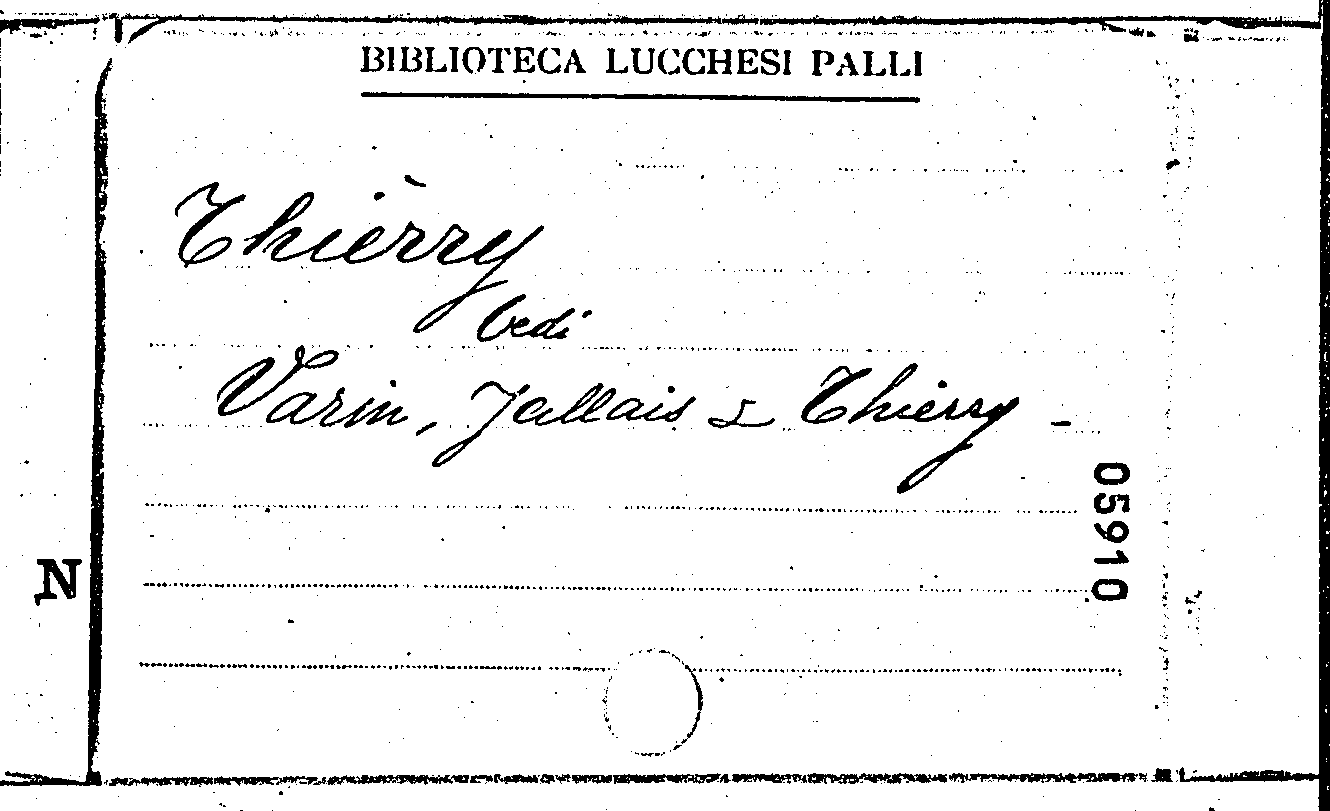 BIBLIOTECA LUCCHESI PALLI
Thièrry
Vedi
Varin, Jallais & Thièrry -
05910
N